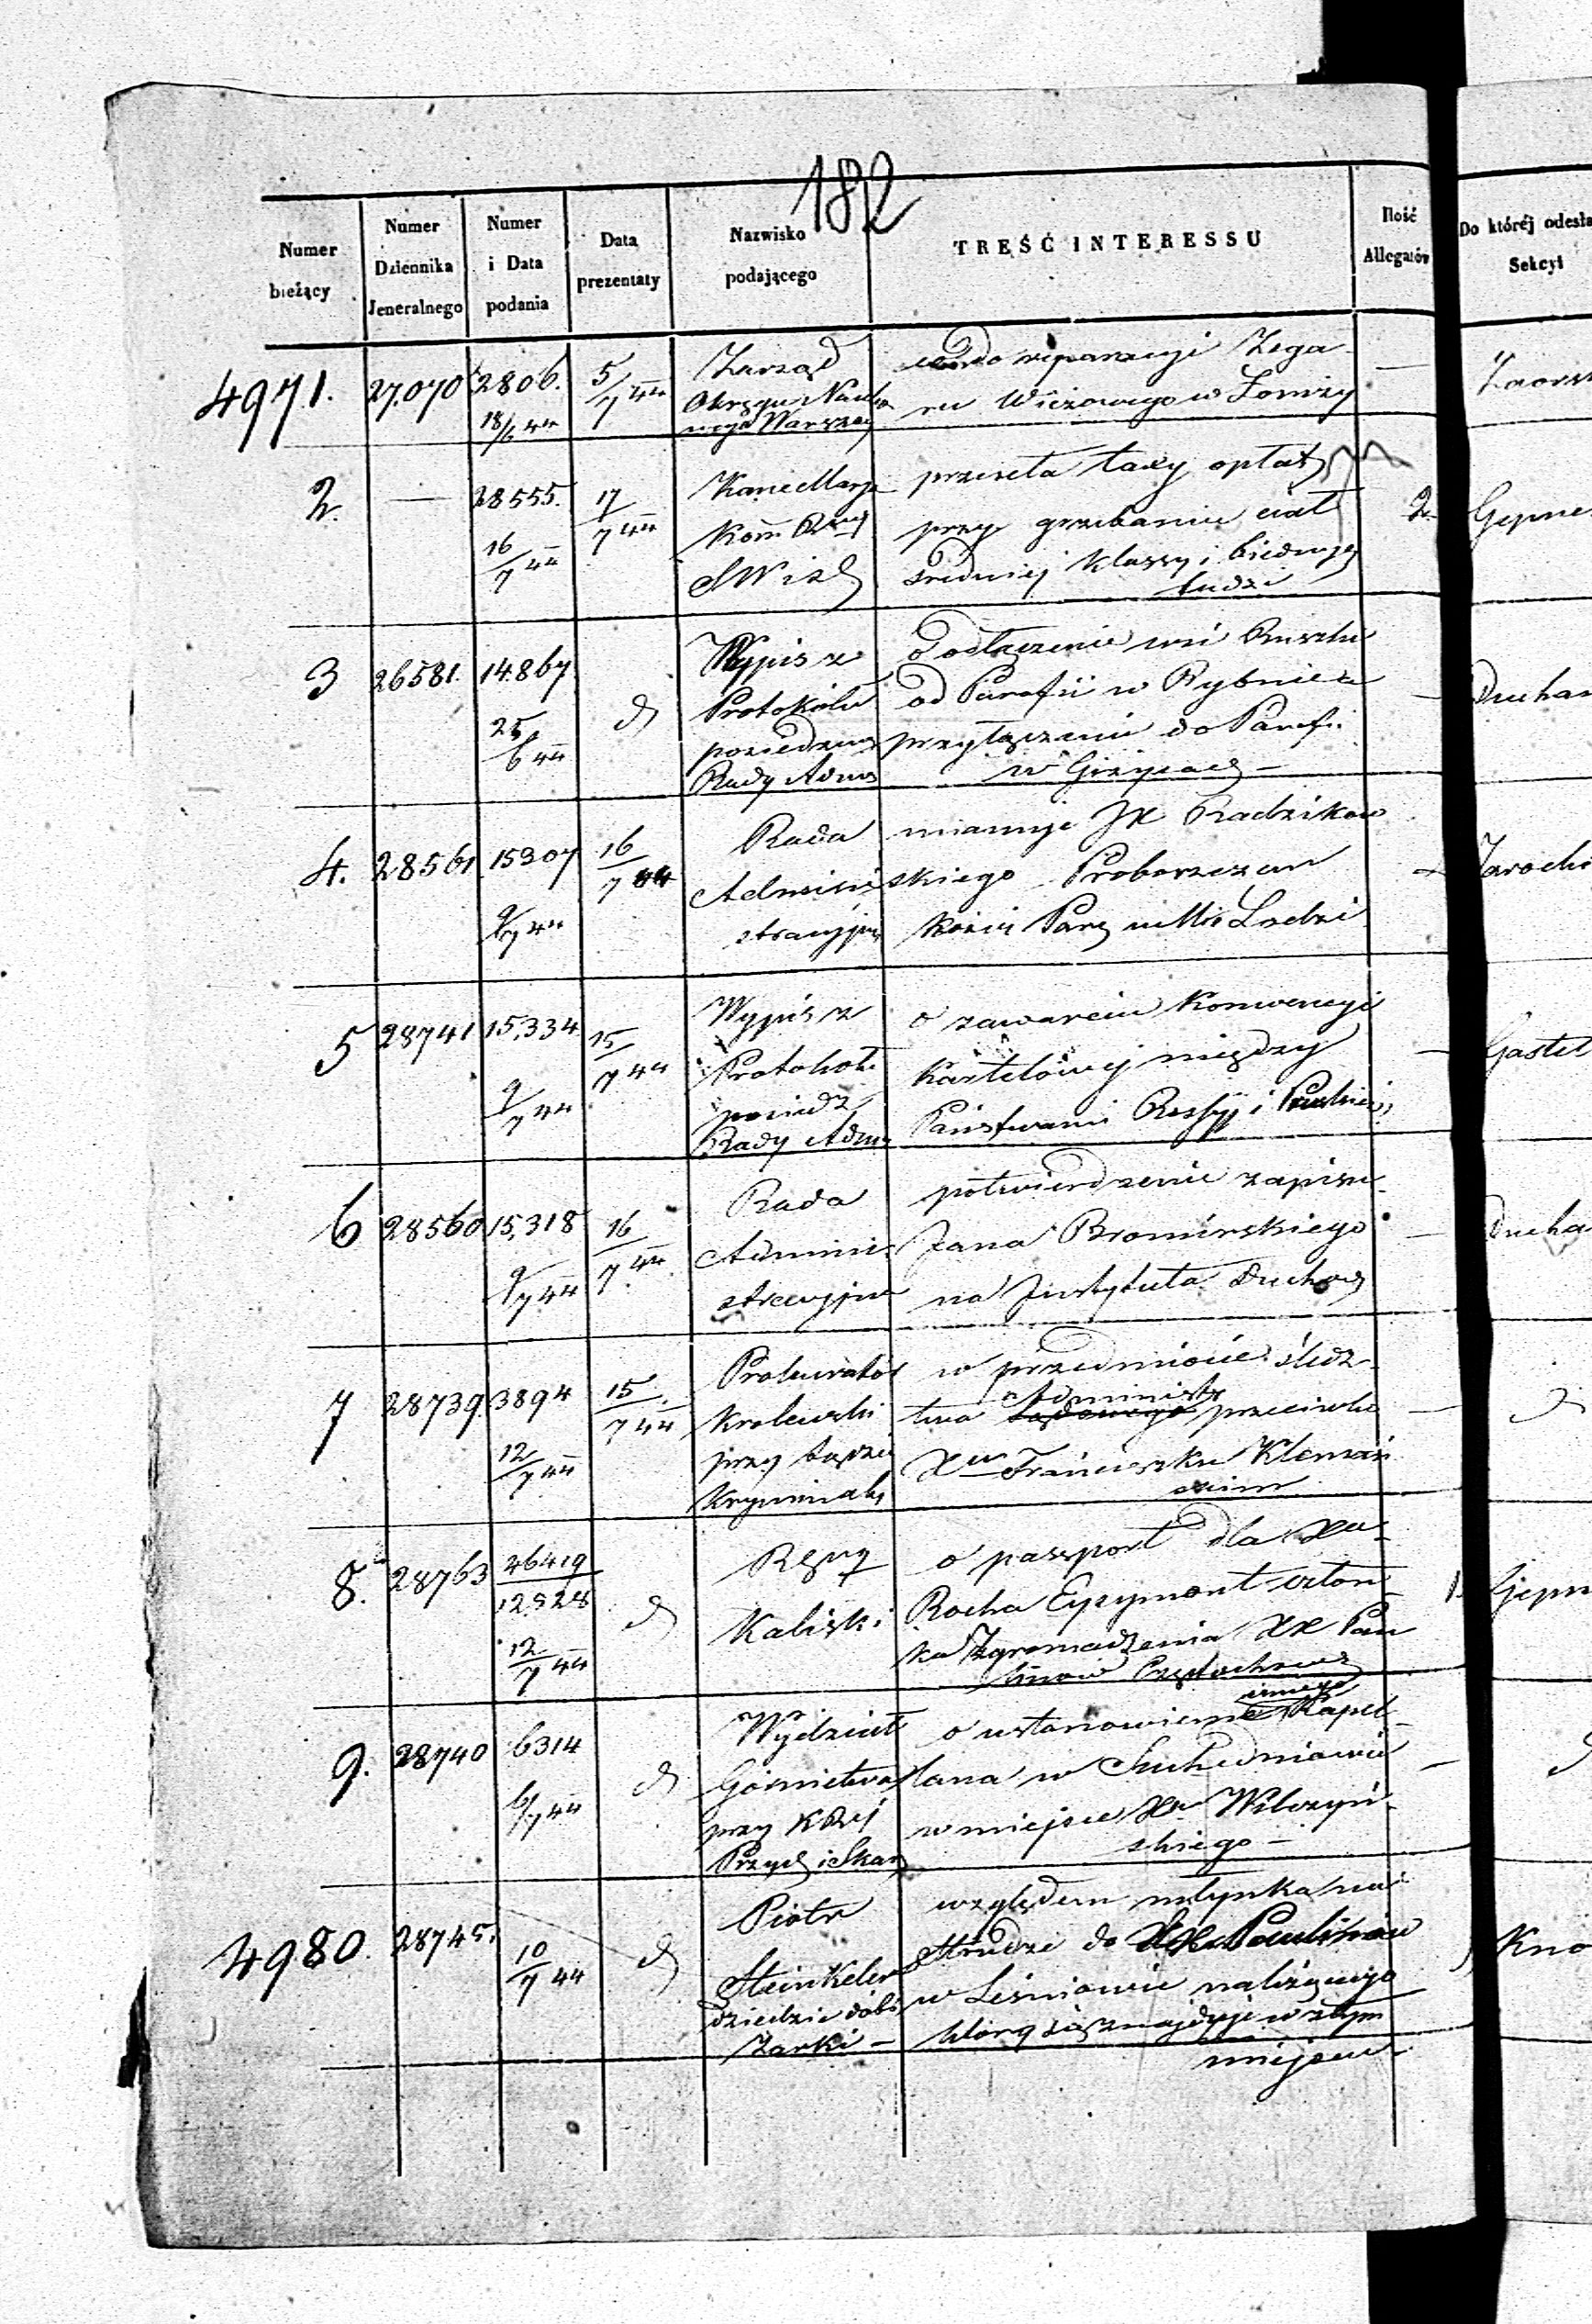 182
Numer bieżący
Numer Dziennika Jeneralnego
Numer i Data podania
Data prezentaty
Nazwisko podającego
TREŚĆ INTERESSU
Ilość Allegatów
Do któréj odesła
Sekcyi
4971. 27.070 2806. 18/6 44 5/7 44
Zarząd
Okręgu Nauko
wego Warszaw
reparacyi Zega
ru Wieżowego w Łomży
—
2. — 28555. 16/7 44 17/7 44
Kancellarya
Kom Rząd
SWiD
przesyła taxy opłat
przy grzebaniu ciał
średniej klassy i biednych
ludzi
2. Gepne
3 26581. 14.867 25/6 44 d
Wypis z
Protokółu
posiedzenia
Rady Adm
o odłączenie wsi Ruszki
od Parafii w Rybnie a
przyłączenie do Parafii
w Giżycach —
— Ducha
4. 28561 15307 9/7 44 16/7 44
Rada
Adminis
stracyjna
mianuje JX Radzikow
skiego Proboszczem
kościoła Par w Mie Łodzi
Jarocki
5 28741 15,334. 9/7 44 15/7 44
Wypis z
Protokołu
posiedz
Rady Adm
o zawarciu Konwencyi
Kartelowej między
Państwami Rossyji i Pruskiej
— Gastel
6 28560 15,318 9/7 44 16/7 44
Rada
Adminis
stracyjna
potwierdzenie zapisu
Jana Bromirskiego
na Instytuta Duchow
— Ducha
7 28739. 3894 12/7 44 15/7 44
Prokurator
Królewski
przy Sądzie
Kryminaln
w przedmiocie śledz
administr
twa przeciwko
Xu Franciszku Klemań
skim
— d
8. 28763 26419 12.828 12/7 44 d
Rząd
Kaliski
o passport dla Xa
Rocha Eyzymont człon
ka Zgromadzenia XX Pau
linów Częstochows
1. Gepn
9. 28740 6314 6/7 44 d
Wydział
Górnictwa
przy KRzj
Przych i Skar
innego
o ustanowienie Kapel
lana w Suchedniowie
w miejsce Xa Wilczyń
skiego —
— d
4980. 28745. 10/7 44 d
Piotr
Steinkeler
dziedzic dóbr
Żarki —
względem młynka na
Strudze do XX Paulinów
w Leśniowie należącego
który się znajduje w złym
miejscu
Kno